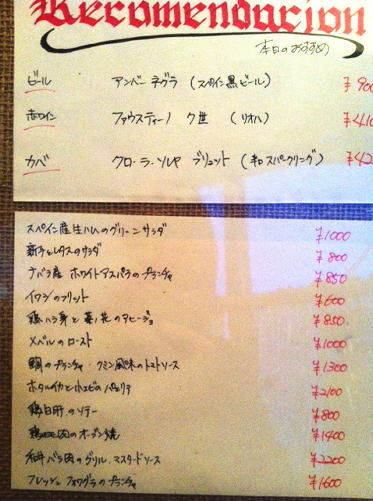 Recomendacion
本日のおすすめ
ビール アンバー ネグラ (スペイン黒ビール) ¥900
赤ワイン ファウスティーノ (リオハ) ¥410
カバ クロ・ラ・ソルヤ ブリュット (辛口スパークリング) ¥42
スペイン産生ハムのグリーンサラダ ¥1000
新子とレタスのサラダ ¥800
ナバラ産 ホワイトアスパラのプランチャ ¥850
イワシのフリット ¥600
鶏ハラ身と菜の花のアヒージョ ¥850
メバルのロースト ¥1000
鯛のプランチャ・クミン風味のトマトソース ¥1300
ホタルイカと小エビのパエリア ¥2100
鶏白肝のソテー ¥800
鶏モモ肉のオーブン焼 ¥1400
和牛バラ肉のグリル マスタードソース ¥2200
フレッシュフォワグラのプランチャ ¥1600